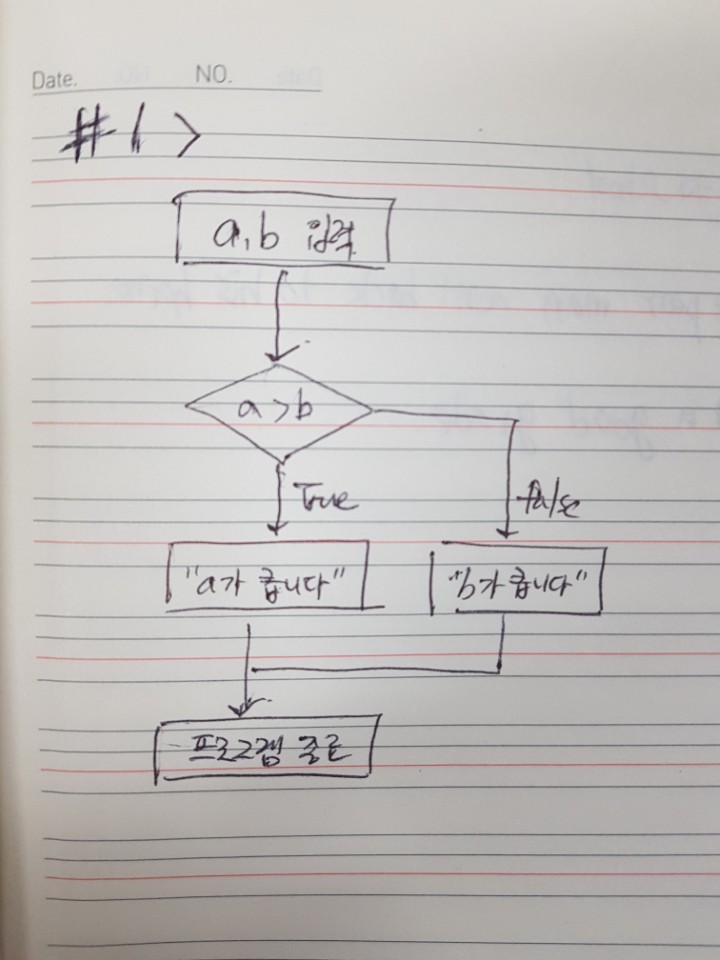 Date. NO.
#1>
a, b 입력
a > b
True
false
"a가 큽니다"
"b가 큽니다"
프로그램 종료